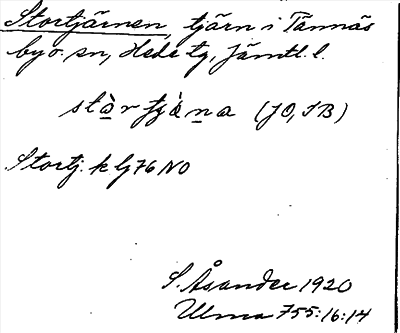 Stortjärnen, tjärn i Tännäs
by o. sn, Hede tg, Jämtl. l.
stòrtjàna (JO, SB)
Stortj. k Lj 76 NO
S. Åsander 1920
Ulma 755:16:14